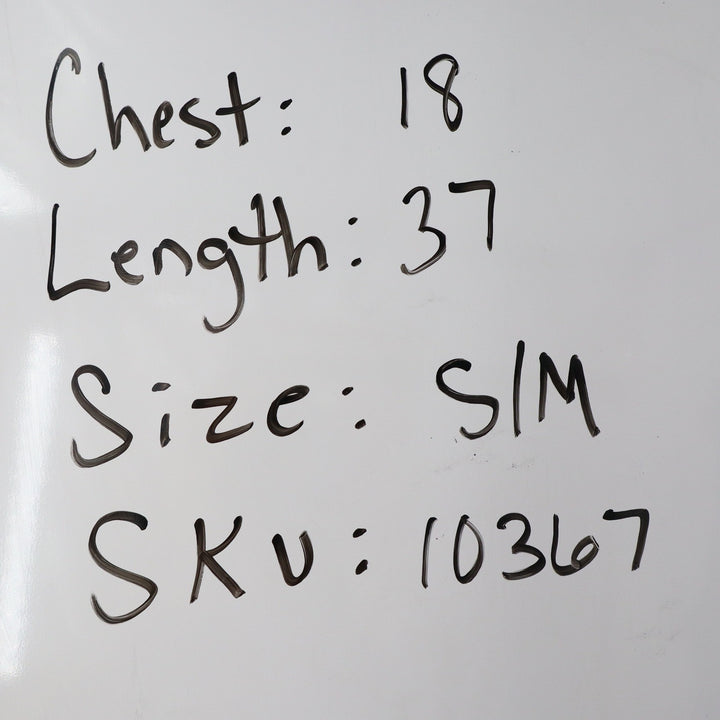 Chest: 18
Length: 37
Size: S/M
SKU: 10367